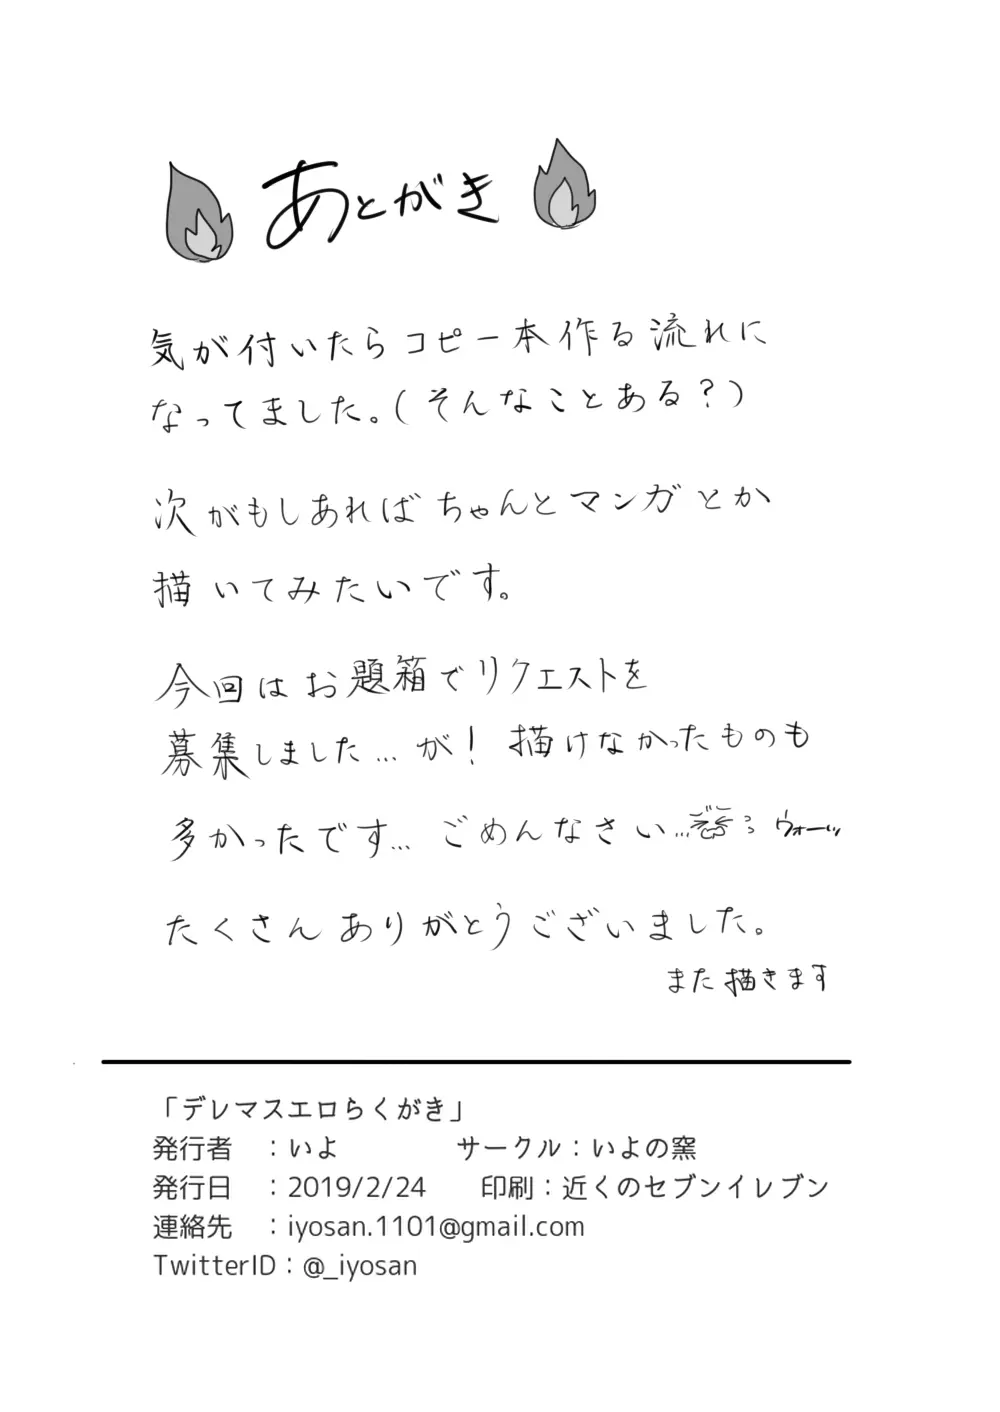 あとがき
気が付いたらコピー本作る流れに
なってました。(そんなことある？)
次がもしあればちゃんとマンガとか
描いてみたいです。
今回はお題箱でリクエストを
募集しました…が！描けなかったものも
多かったです…ごめんなさい… ウォーッ
たくさんありがとうございました。
また描きます
「デレマスエロらくがき」
発行者　：いよ　　　　サークル：いよの窯
発行日　：2019/2/24　　印刷：近くのセブンイレブン
連絡先　：iyosan.1101@gmail.com
TwitterID：@_iyosan